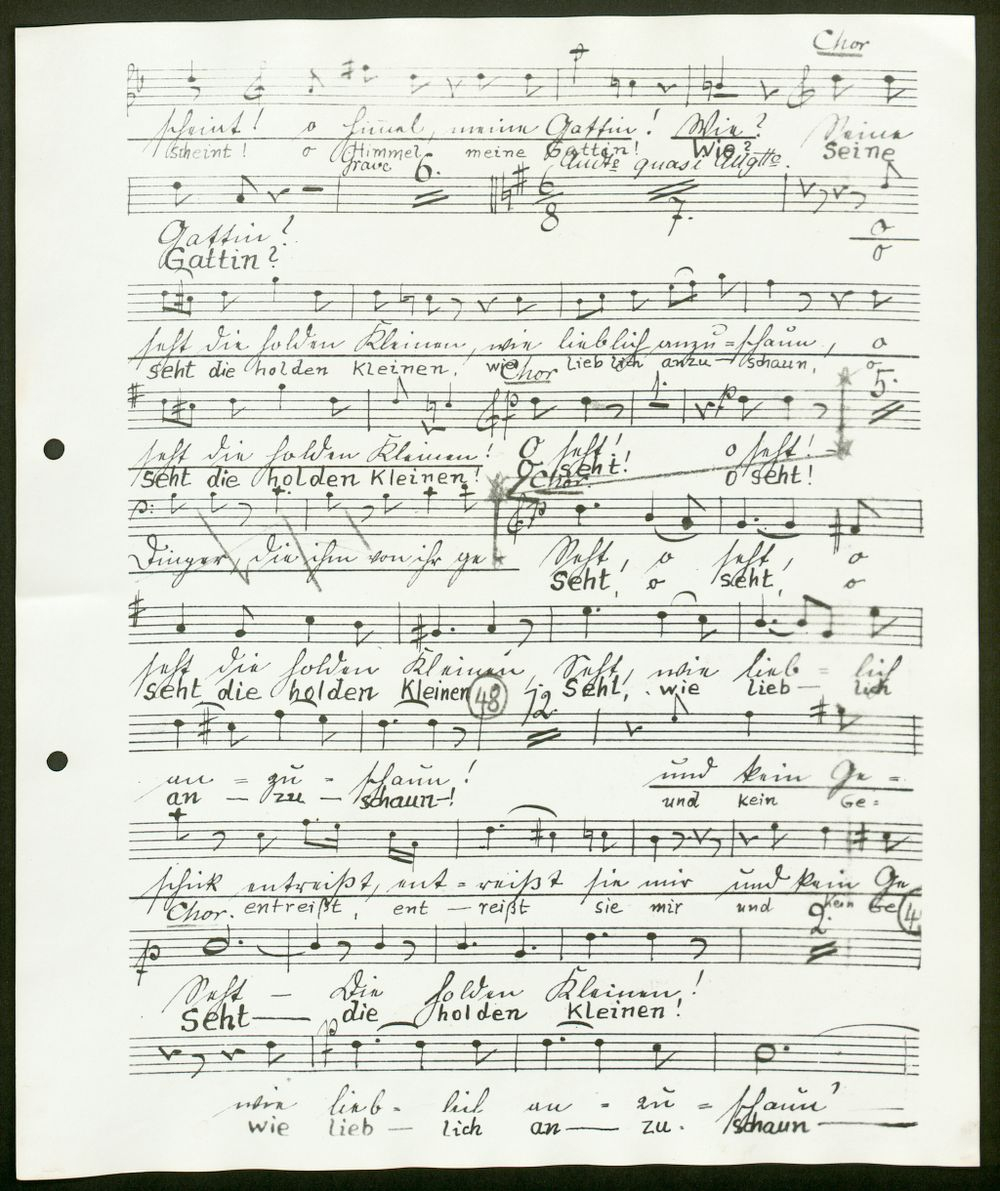 Chor
scheint! o Himel, meine Gattin! Wie? Seine
scheint! o Himmel meine Gattin! Wie? Seine
6. Andte quasi Allgtto.
6
8 7.
Gattin? o
Gattin? o
seht die holden Kleinen, wie lieblich anzu=schaun, o
seht die holden Kleinen, wie lieblich anzu— schaun, o
Chor 5.
seht die holden Kleinen! O seht! o seht!
seht die holden Kleinen! O seht! o seht!
Chor.
Dinger, die ihm von ihr ge Seht, o seht, o
Seht, o seht, o
seht die holden Kleinen Seht, wie lieb = lich
seht die holden Kleinen Seht, wie lieb— lich
48 12.
an = zu = schaun! und kein Ge=
an — zu — schaun—! und kein Ge=
schick entreißt, ent=reißt sie mir und kein Ge
Chor. entreißt, ent—reißt sie mir und kein Ge
2.
Seht — Die holden Kleinen!
Seht— die holden Kleinen!
wie lieb= lich an = zu = schaun
wie lieb— lich an— zu. schaun—